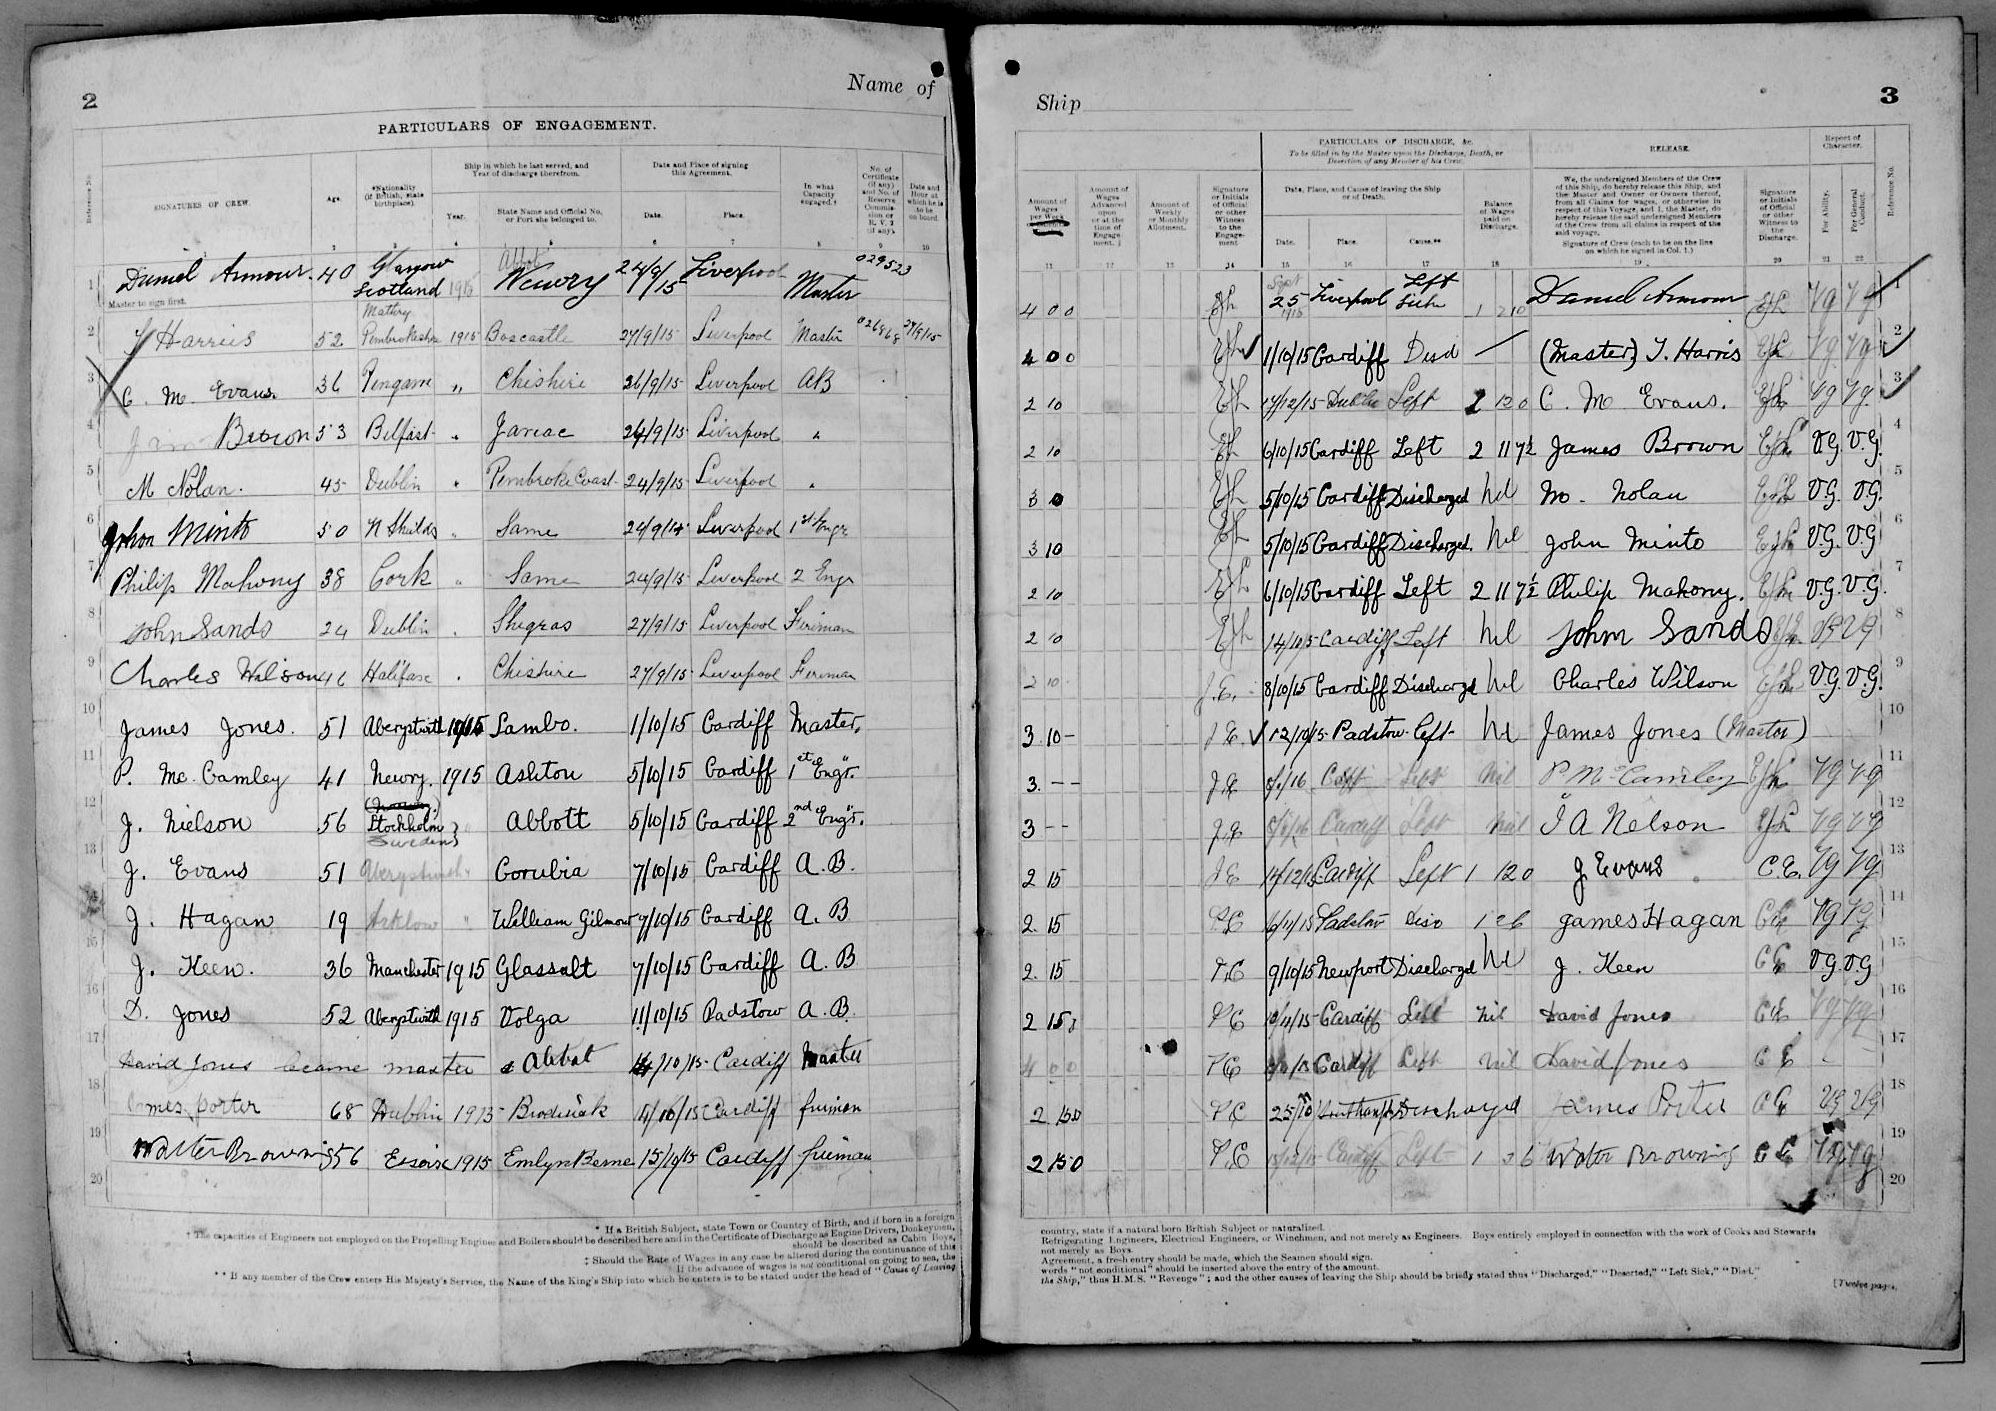 2
Name of
PARTICULARS OF ENGAGEMENT.
Reference No.
SIGNATURES OF CREW.
Age.
*Nationality (if British, state birthplace).
Ship in which he last served, and Year of discharge therefrom.
Year.
State Name and Official No. or Port she belonged to.
Date and Place of signing this Agreement.
Date.
Place.
In what Capacity engaged.†
No. of Certificate (if any) and No. of Reserve Commission or R.V. 2 (if any).
Date and Hour at which he is to be on board
1 2 4 5 6 7 8 9 10
1 Daniel Armour. 40 Glasgow Scotland 1915 Abbot Newry 24/9/15 Liverpool Master 029523
Master to sign first.
2 Harries 52 Mathry Pembrokeshire 1915 Boscastle 27/9/15 Liverpool Master 27/9/15
3 C. M. Evans 36 Pengam " Cheshire 26/9/15 Liverpool AB
4 Brown 53 Belfast " Jareac 24/9/15 Liverpool "
5 M Nolan. 45 Dublin " Pembroke Coast 24/9/15 Liverpool "
6 John Minto 50 N Shields " Same 24/9/15 Liverpool 1st Engr
7 Philip Mahony 38 Cork " Same 24/9/15 Liverpool 2 Engr
8 John Sands 24 Dublin " 27/9/15 Liverpool Fireman
9 Charles Wilson 46 Halifax " Cheshire 27/9/15 Liverpool Fireman
10 James Jones. 51 Aberystwith 1915 Sambo. 1/10/15 Cardiff Master.
11 P. Mc Camley 41 Newry. 1915 Ashton 5/10/15 Cardiff 1st Engr.
12 J. Nielson 56 Stockholm Sweden } Abbott 5/10/15 Cardiff 2nd Engr.
13 J. Evans 51 Aberystwith " Corubia 7/10/15 Cardiff A. B.
14 J. Hagan 19 Arklow " William Gilmour 7/10/15 Cardiff A. B
15 J. Keen. 36 Manchester 1915 Glassalt 7/10/15 Cardiff A. B
16 D. Jones 52 Aberystwith 1915 Volga 11/10/15 Padstow A. B.
17 David Jones became master Abbot 14/10/15 Cardiff Master
18 James Porter 68 Dublin 1915 Broderick Cardiff fireman
19 Walter Browning 56 1915 15/10/15 Cardiff fireman
20
* If a British Subject, state Town or Country of Birth, and if born in a foreign
† The capacities of Engineers not employed on the Propelling Engines and Boilers should be described here and in the Certificate of Discharge as Engine Drivers, Donkeymen,
should be described as Cabin Boys,
‡ Should the Rate of Wages in any case be altered during the continuance of this
If the advance of wages is not conditional on going to sea, the
** If any member of the Crew enters His Majesty's Service, the Name of the King's Ship into which he enters is to be stated under the head of "Cause of Leaving
Ship
3
PARTICULARS OF DISCHARGE, &c.
To be filled in by the Master upon the Discharge, Death, or Desertion of any Member of his Crew.
RELEASE.
Report of Character.
Amount of Wages per Week
Amount of Wages Advanced upon or at the time of Engagement.‡
Amount of Weekly or Monthly Allotment.
Signature or Initials of Official or other Witness to the Engagement
Date, Place, and Cause of leaving the Ship or of Death.
Date.
Place.
Cause.**
Balance of Wages paid on Discharge.
We, the undersigned Members of the Crew of this Ship, do hereby release this Ship, and the Master and Owner or Owners thereof, from all Claims for wages, or otherwise in respect of this Voyage, and I, the Master, do hereby release the said undersigned Members of the Crew from all claims in respect of the said voyage.
Signature of Crew (each to be on the line on which he signed in Col. 1.)
Signature or Initials of Official or other Witness to the Discharge.
For Ability.
For General Conduct.
Reference No.
11 12 13 14 15 16 17 18 19 20 21 22
4 0 0 Sept 25 1915 Liverpool Left Daniel Armour Vg Vg 1
4 0 0 1/10/15 Cardiff Disd (Master) T. Harris Vg Vg 2
2 10 17/12/15 Dublin Left 2 12 0 C. M. Evans. Vg Vg 3
2 10 6/10/15 Cardiff Left 2 11 7½ James Brown V.G. V.G. 4
3 0 5/10/15 Cardiff Discharged Nil M. Nolan V.G. V.G. 5
3 10 5/10/15 Cardiff Discharged. Nil John Minto V.G. V.G 6
2 10 6/10/15 Cardiff Left 2 11 7½ Philip Mahony. V.G. V.G. 7
2 10 Cardiff Left Nil John Sands 8
2 10 J.E. 8/10/15 Cardiff Discharged Nil Charles Wilson V.G. V.G. 9
3. 10 - J.E. 12/10/15 Padstow Left Nil James Jones (Master) 10
3. - - J.E. Nil P McCamley Vg Vg 11
3 - - J.E. Cardiff Left Nil J A Nelson Vg Vg 12
2 15 J E 14/12/15 Cardiff Left 1 12 0 J Evans C E. Vg Vg 13
2. 15 6/11/15 Padstow Disd James Hagan C E Vg Vg 14
2. 15 9/10/15 Newport Discharged Nil J. Keen C E V.G. V.G 15
2 15 Cardiff Left Nil David Jones C E Vg Vg 16
4 0 0 Cardiff Left Nil David Jones C E 17
2. 15 0 Southampton Discharged James Porter C E Vg Vg 18
2 15 0 Cardiff Left Walter Browning C E Vg Vg 19
20
country, state if a natural born British Subject or naturalized.
Refrigerating Engineers, Electrical Engineers, or Winchmen, and not merely as Engineers. Boys entirely employed in connection with the work of Cooks and Stewards
not merely as Boys.
Agreement, a fresh entry should be made, which the Seamen should sign.
words "not conditional" should be inserted above the entry of the amount.
the Ship," thus H.M.S. "Revenge"; and the other causes of leaving the Ship should be briefly stated thus "Discharged," "Deserted," "Left Sick," "Died."
[Twelve pages.